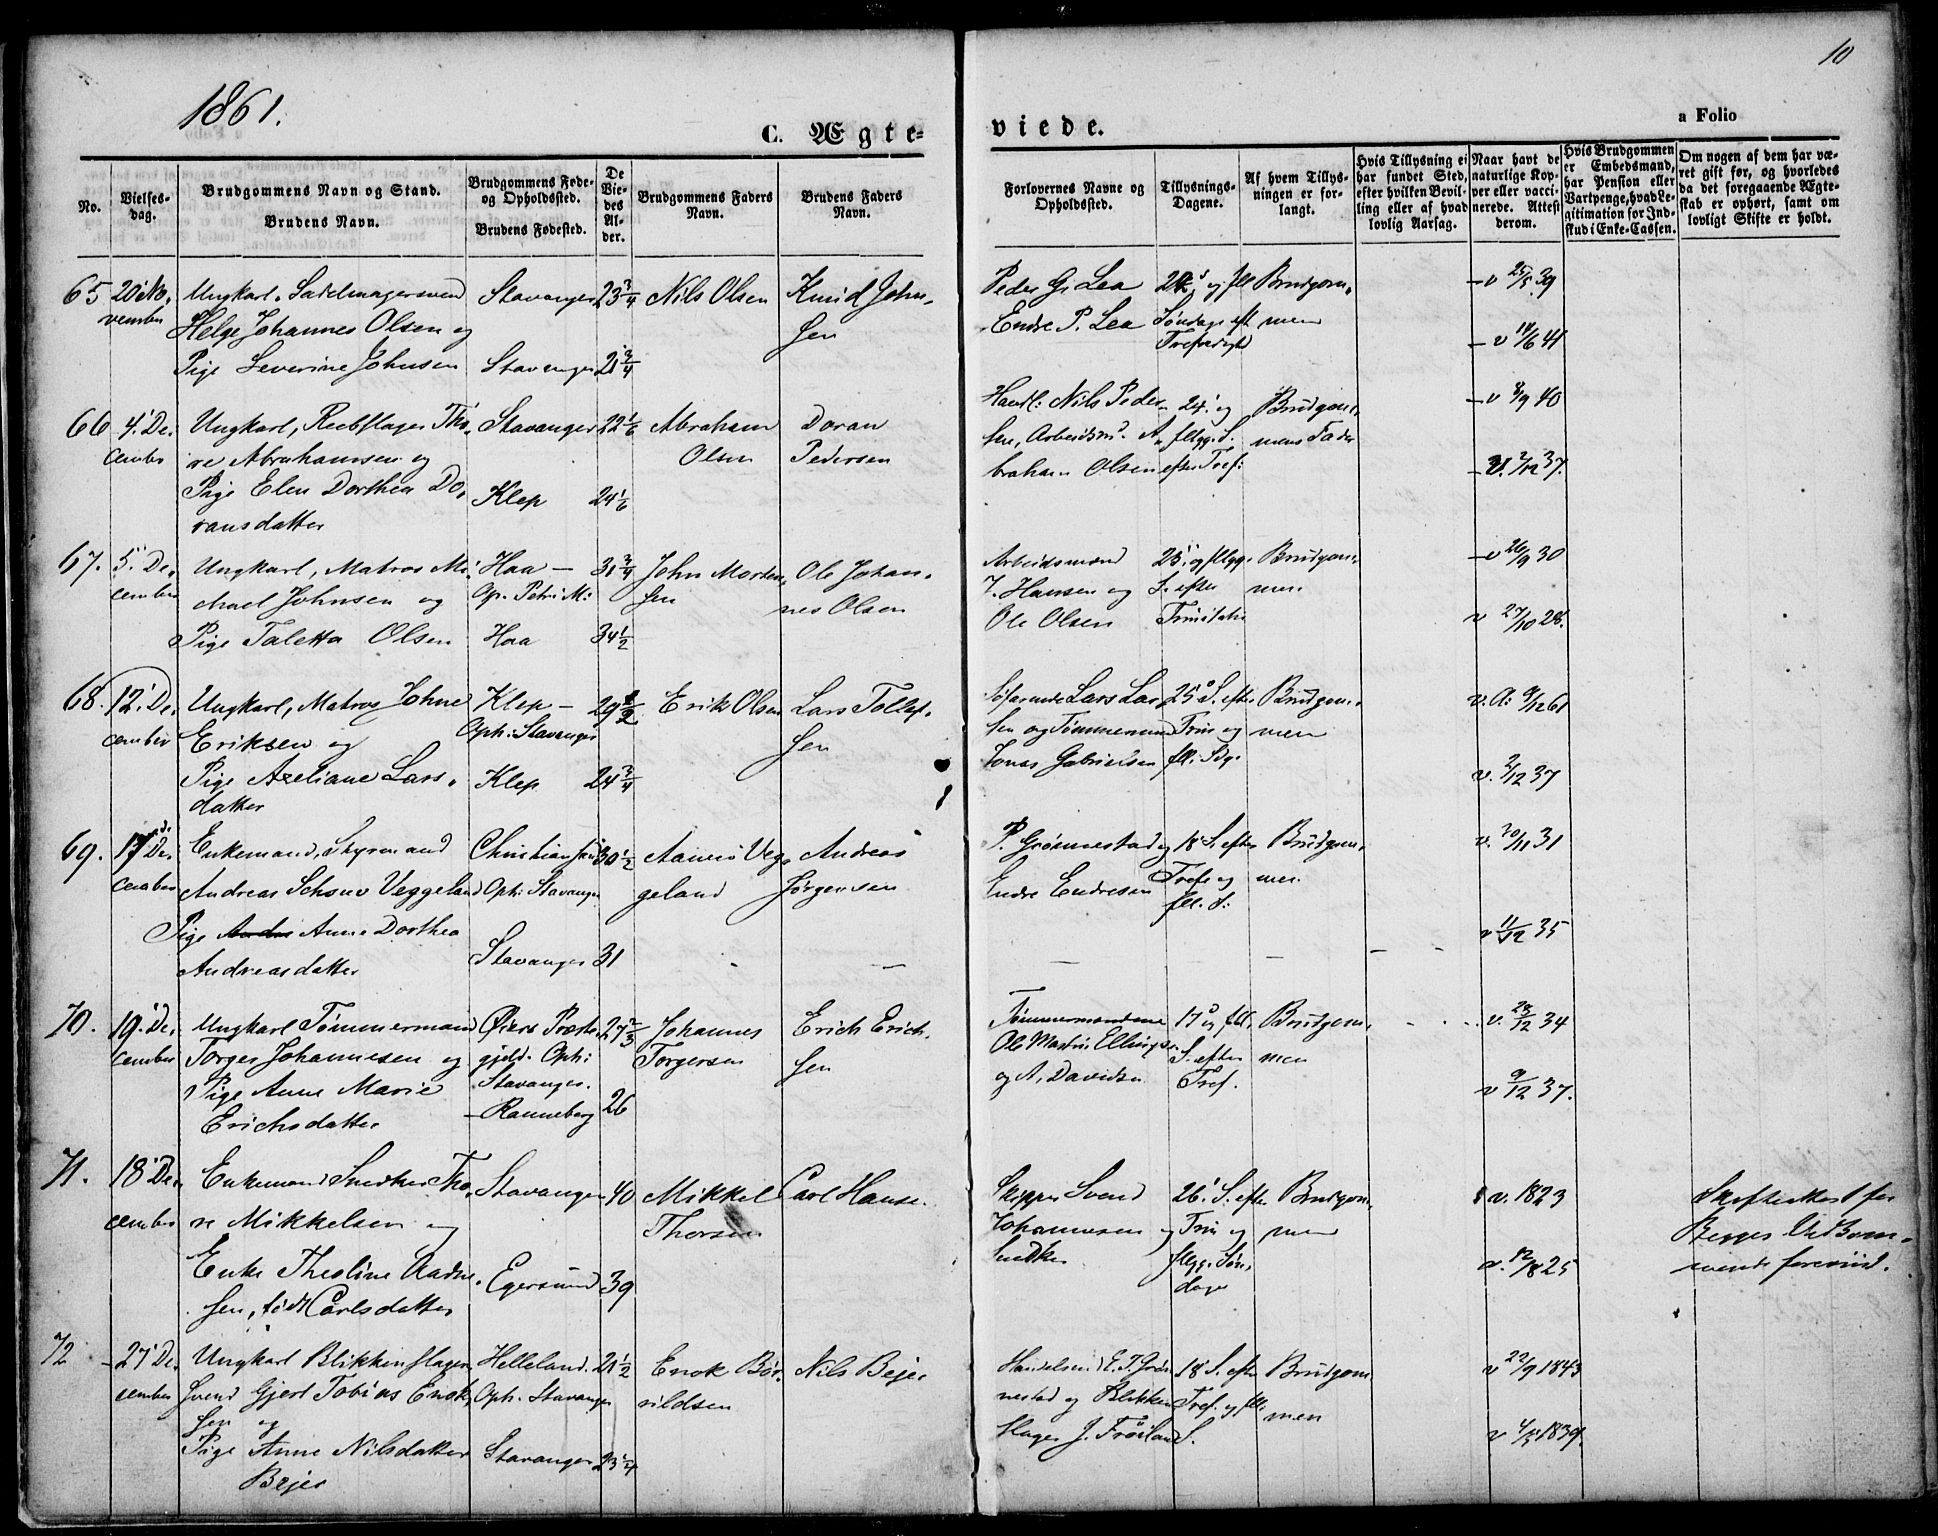 10
1861.
C. Ægte=
viede.
a Folio
No.
Vielses-
dag.
Brudgommens Navn og Stand.
Brudens Navn.
Brudgommens Føde-
og Opholdssted.
Brudens Fødested.
De
Vie-
des
Al-
der.
Brudgommens Faders
Navn.
Brudens Faders
Navn.
Forlovernes Navne og
Opholdssted.
Tillysnings-
Dagene.
Af hvem Tillys-
ningen er for-
langt.
Hvis Tillysning ei
har fundet Sted,
efter hvilken Bevil-
ling eller af hvad
lovlig Aarsag.
Naar havt de
naturlige Kop-
per eller vacci-
nerede. Attest
derom.
Hvis Brudgommen
er Embedsmand,
har Pension eller
Vartpenge, hvad Le-
gitimation for Ind-
skud i Enke-Cassen.
Om nogen af dem har væ-
ret gift før, og hvorledes
da det foregaaende Ægte-
skab er ophørt, samt om
lovligt Skifte er holdt.
65
20' No-
vember
Ungkarl, Sadelmagersvend
Helge Johannes Olsen og
Pige Severine Johnsen
Stavanger
Stavanger
23 3/4
21 3/4
Nils Olsen
Knud John-
sen
Peder G. Lea
Endre P. Lea
og fll
Søndage eft
Trefoldigh
Brudgom-
men
- v 25/5 39
- v 14/6 41
66
4' De-
cember
Ungkarl, Reebslager Tho-
re Abrahamsen og
Pige Elen Dorthea Do-
ransdatter
Stavanger
Klep
22 1/6
24 1/6
Abraham
Olsen
Doran
Pedersen
Handl: Nils Peder-
sen, Arbeidsmd. A-
braham Olsen
24' og
fllgg. S.
efter Tref:
Brudgom-
mens Fader
- v 8/9 40
- v. 2/12 37.
67.
5' De-
cember
Ungkarl, Matros Mi-
chael Johnsen og
Pige Taletta Olsen
Haa -
Op. Petri M:
Haa
31 3/4
34 1/2
John Morten-
sen
Ole Johan-
nes Olsen
Arbeidsmænd
J. Hansen og
Ole Olsen
25' og fllgg.
S. efter
Trinitatis
Brudgom-
men
- v 26/9 30
v 27/10 28.
68.
12' De-
cember
Ungkarl, Matros Johne
Eriksen og
Pige Axeliane Lars-
datter
Klep -
Oph: Stavanger
Klep
29 1/2
24 3/4
Erik Olsen
Lars Tollef-
sen
Søfarende Lars Lar-
sen og Tømmermand
Jonas Gabrielsen
25' S. efter
Trin og
fll: Sdg.
Brudgom-
men
v. A: 9/12 61
v. 2/12 37
69.
17 De-
cember
Enkemand, Styrmand
Andreas Schouv Veggeland
Pige Anne Dorthea
Andreasdatter
Christiansand
Oph: Stavanger
Stavanger
30 1/2
31
Aanen Veg-
geland
Andreas
Jørgensen
P. Grønnestad og
Endre Endresen
18' S. efter
Tref. og
fll. S:
Brudgom-
men
v. 20/11 31
v 11/12 35
70.
19' De-
cember
Ungkarl Tømmermand
Torger Johannesen og
Pige Anne Marie
Erichsdatter
Øiers Præste-
gjeld. Oph:
Stavanger.
- Ranneberg
27 2/3
26
Johannes
Torgersen
Erich Erich-
sen
Tømmermændene
Ole Martin Ellingsen
og A. Davidsen
17' og fll.
S. efter
Tref.
Brudgom-
men
v. 28/12 34
v 9/12 37.
71.
18' De-
cember
Enkemand Snedker Tho-
re Mikkelsen og
Enke Theoline Aadne-
sen, født Carlsdatter
Stavanger
Egersund
40
39
Mikkel
Thorsen
Carl Hanse-
Skipper Svend
Johannesen og
Snedker
26' S. efter
Trin og
fllgg. Søn-
dage
Brudgom-
men
v. 1823
v. 12/8 25
Skifteattest for
Begges Vedkom-
mende forevist.
72
27' De-
cember
Ungkarl Blikkenslager-
svend Gjert Tobias Enok-
sen og
Pige Anne Nilsdatter
Bejer
Helleland.
Oph: Stavanger
Stavanger
21 1/2
23 1/4
Enok Bør-
rildsen
Nils Bejer
Handelsmd E. T. Grøn-
nestad og Blikken-
slager J. Frøiland
18' S. efter
Tref. og fll.
S.
Brudgom-
men
v 22/9 1843
v 4/5 1839.